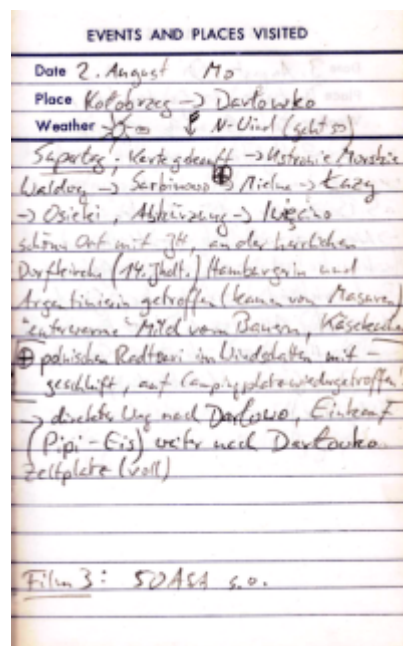 EVENTS AND PLACES VISITED
Date 2. August Mo
Place Kołobrzeg -> Darłowko
Weather N-Wind (geht so)
Supertag; Karte gekauft -> Ustronie Morskie
Waldweg -> Sarbinowo ⊕ -> Mielno -> Łazy
-> Osieki, Abkürzung -> Iwięcino
schöner Ort mit JH, an der herrlichen
Dorfkirche (14. Jhdt.) Hamburgerin und
Argentinierin getroffen (kamen von Masuren)
Milch vom Bauern,
⊕ polnischen Radtouri im Windschatten mit-
geschleift, auf Campingplatz wiedergetroffen!
-> direkter Weg nach Darłowo, Einkauf
(Pipi-Eis) weiter nach Darłowko
Zeltplatz (voll)
Film 3: 50 ASA s.o.